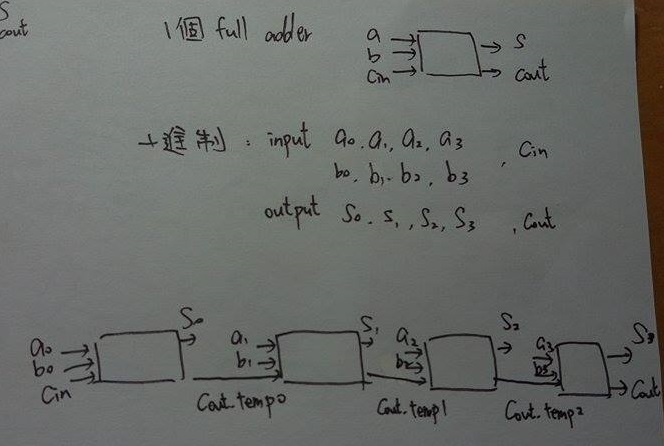 S
cout
1個 full adder
a
b
Cin
S
cout
十進制 : input a0. a1, a2, a3
b0. b1. b2, b3
, Cin
output S0. S1, S2, S3 , Cout
a0
b0
Cin
S0
Cout.temp0
a1
b1
S1
Cout.temp1
a2
b2
S2
Cout.temp2
a3
b3
S3
Cout